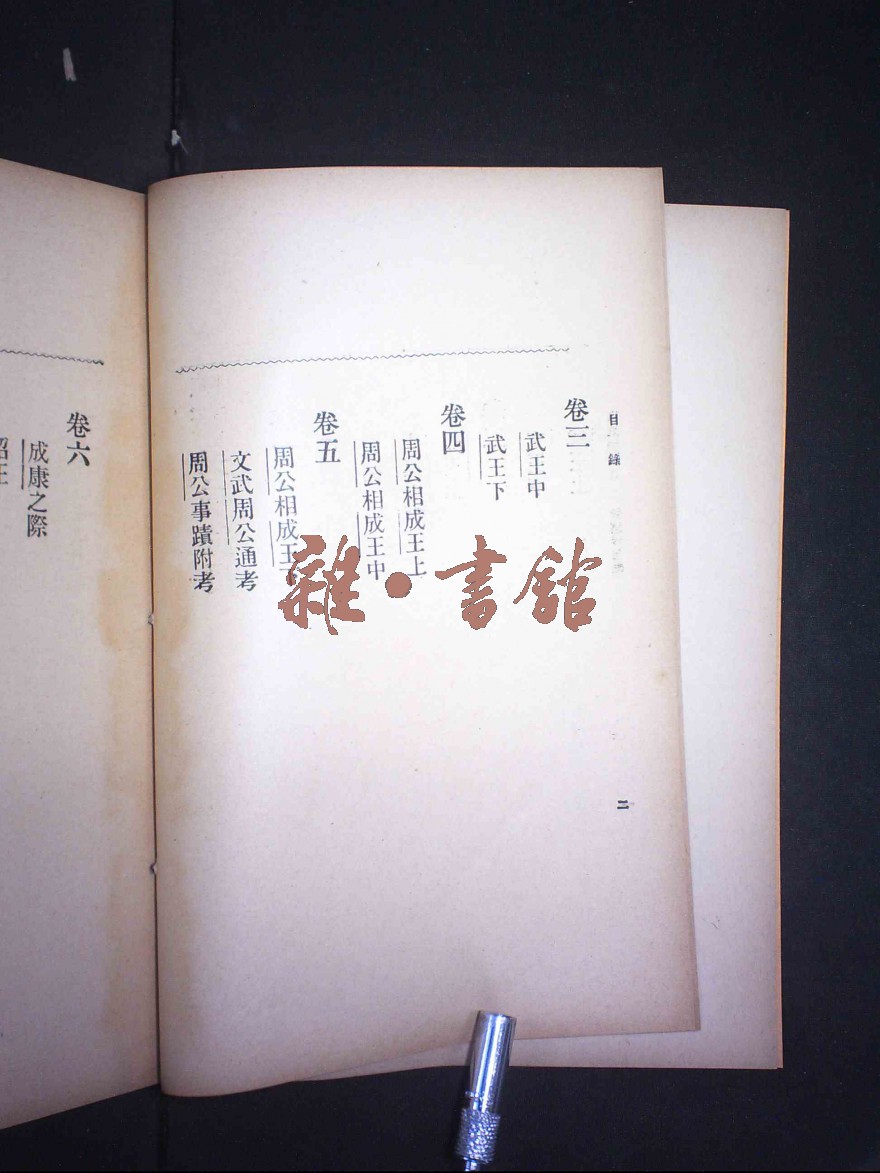 目錄
卷三
武王中
武王下
卷四
周公相成王上
周公相成王中
卷五
周公相成王下
文武周公通考
周公事蹟附考
二
卷六
成康之際
雜·書館